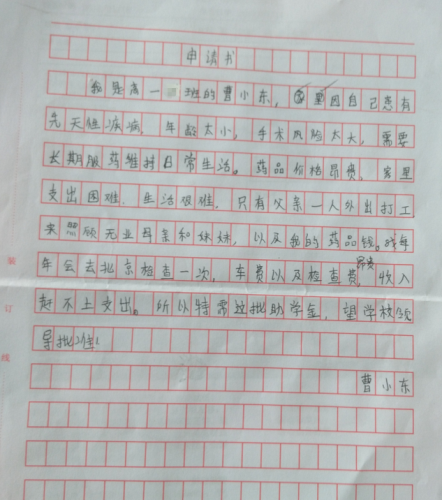 申请书
我是高一 班的曹小东，家里因自己患有
先天性疾病，年龄太小，手术风险太大，需要
长期服药维持日常生活。药品价格昂贵，家里
支出困难。生活艰难。只有父亲一人外出打工
来照顾无业母亲和妹妹，以及我的药品钱。每年
年会去北京检查一次，车费以及检查费昂贵，收入
赶不上支出。所以特需过批助学金，望学校领
导批准！
曹小东
装
订
线